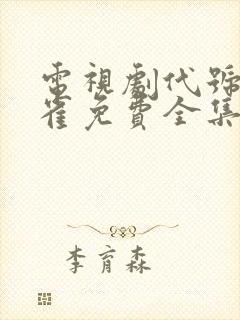 電視劇代號
雀免費全集
李育森